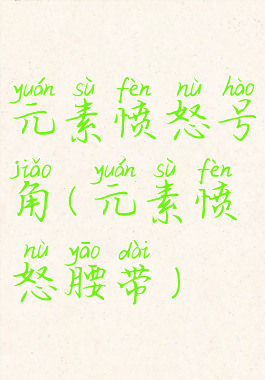 yuán sù fèn nù hào
元素愤怒号
jiǎo yuán sù fèn
角(元素愤
nù yāo dài
怒腰带)